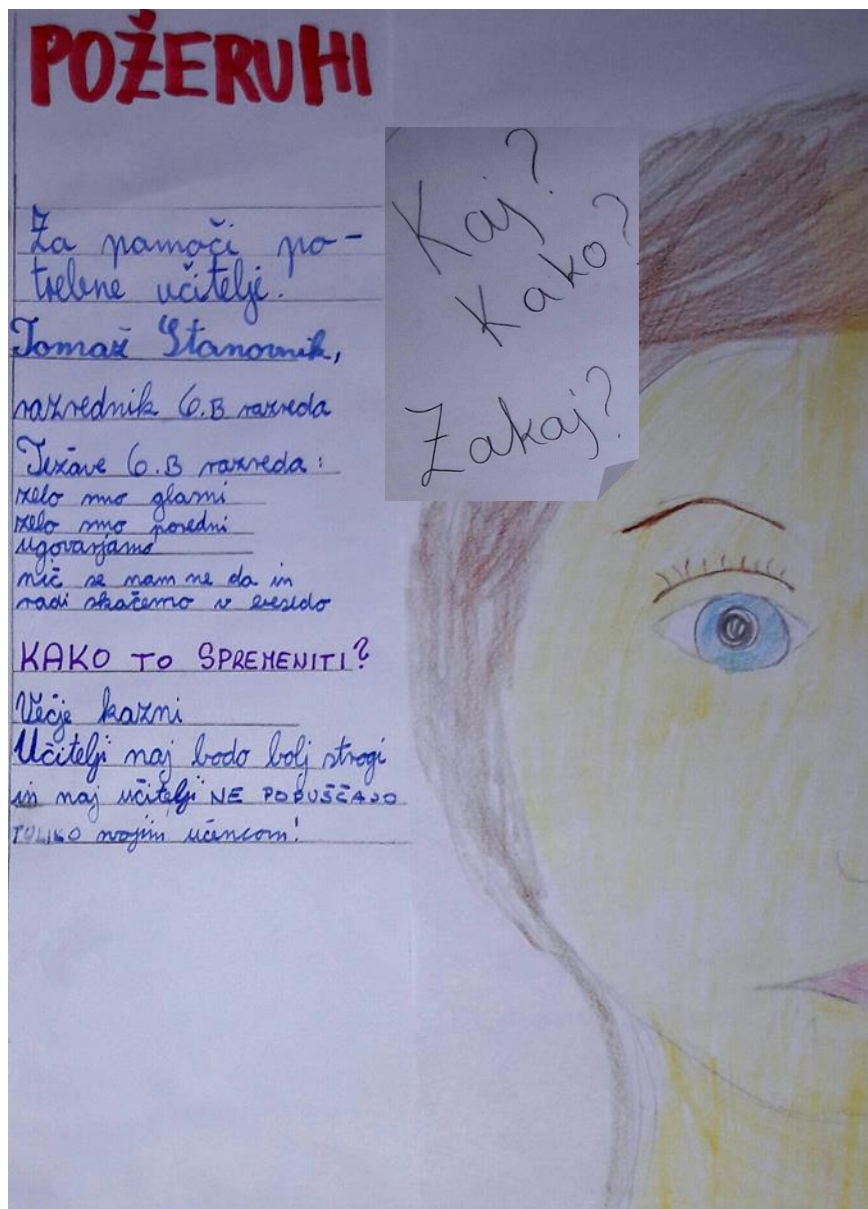 POŽERUHI
Za pomoči po-
trebne učitelje.
Tomaž Stanovnik,
razrednik 6.B razreda
Težave 6.B razreda:
zelo smo glasni
zelo smo poredni
ugovarjamo
nič se nam ne da in
radi skačemo v besedo
KAKO TO SPREMENITI?
Večje kazni
Učitelji naj bodo bolj strogi
in naj učitelji NE POPUŠČAJO
TOLIKO svojim učencom!
Kaj?
Kako?
Zakaj?